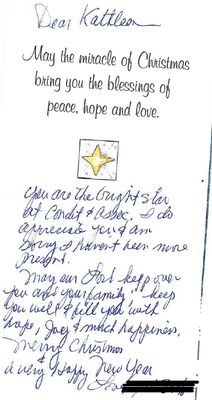 Dear Kathleen
May the miracle of Christmas
bring you the blessings of
peace, hope and love.
You are the bright star
at Condit & Assoc. I do
appreciate you & am
Sorry I havent been more
present.
May our Lord keep over
you and your family & keep
you well & fill you with
hope, Joy & much happiness.
Merry Christmas
&
a very Happy New Year